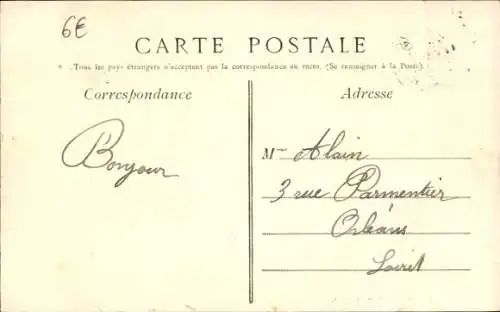 6€
CARTE POSTALE
Tous les pays étrangers n'acceptent pas la correspondance au recto. (Se renseigner à la Poste).
Correspondance
Adresse
Bonjour
Mme Alain
3 rue Parmentier
Orléans
Loiret